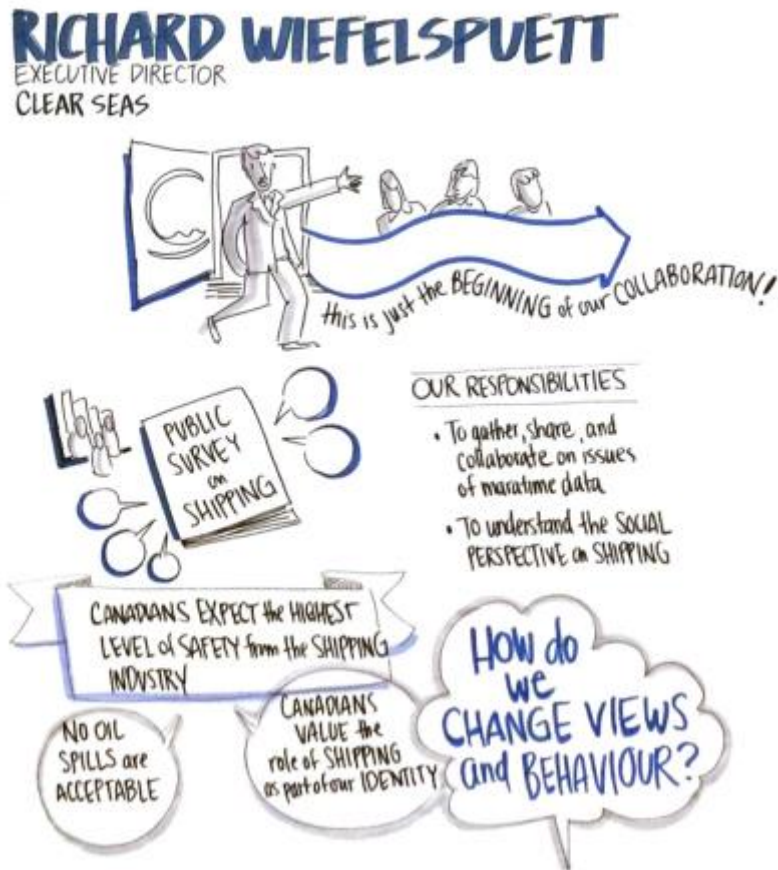 RICHARD WIEFELSPUETT
EXECUTIVE DIRECTOR
CLEAR SEAS
this is just the BEGINNING of our COLLABORATION!
PUBLIC
SURVEY
on
SHIPPING
OUR RESPONSIBILITIES
• To gather, share, and
collaborate on issues
of maratime data
• To understand the SOCIAL
PERSPECTIVE on SHIPPING
CANADIANS EXPECT the HIGHEST
LEVEL of SAFETY from the SHIPPING
INDUSTRY
NO OIL
SPILLS are
ACCEPTABLE
CANADIANS
VALUE the
role of SHIPPING
as part of our IDENTITY
HOW do
we
CHANGE VIEWS
and BEHAVIOUR?